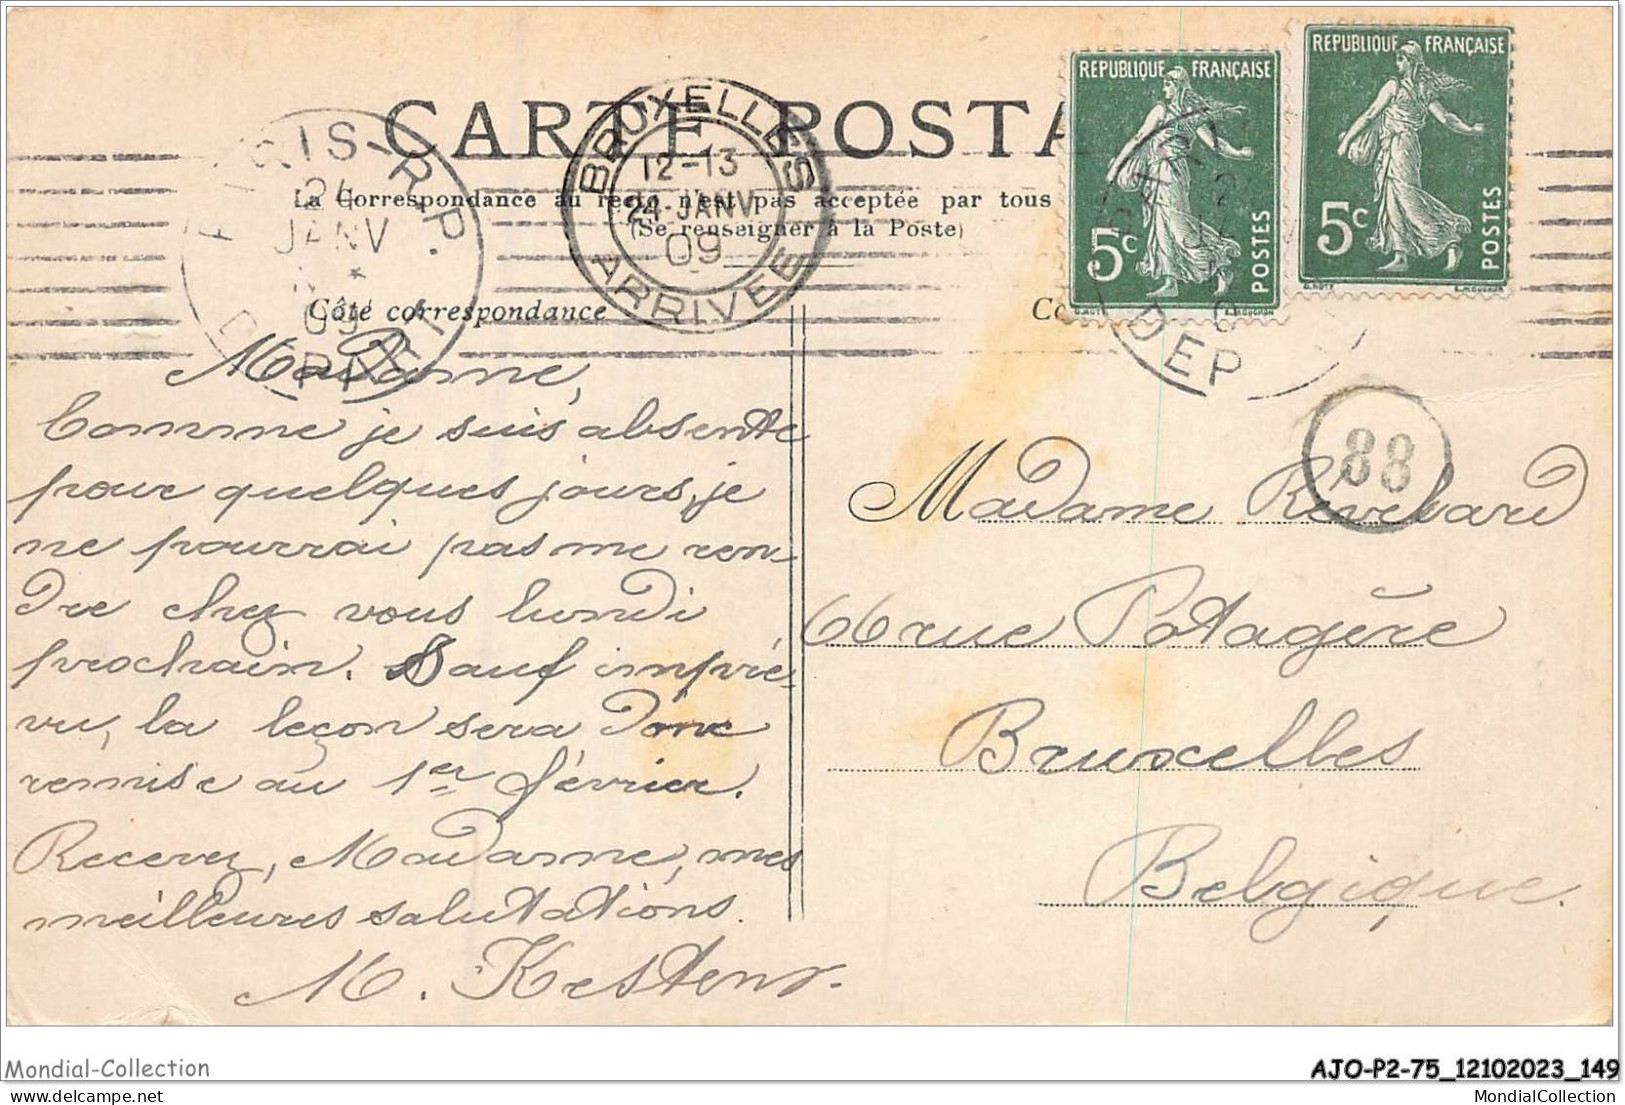 CARTE POSTA
La Correspondance au recto n'est pas acceptée par tous
(Se renseigner à la Poste)
Côté correspondance
REPUBLIQUE FRANÇAISE
5c
POSTES
REPUBLIQUE FRANÇAISE
5c
POSTES
PARIS R.P.
24
JANV
09
DEPART
BRUXELLES
12-13
24-JANV
09
ARRIVEE
DEP
88
Madame,
Comme je suis absente
pour quelques jours, je
ne pourrai pas me ren-
dre chez vous lundi
prochain. Sauf impré-
vu, la leçon sera donc
remise au 1er février.
Recevez, Madame, mes
meilleures salutations.
Madame
66 rue Potagère
Bruxelles
Belgique.
Mondial-Collection
AJO-P2-75_12102023_149
MondialCollection